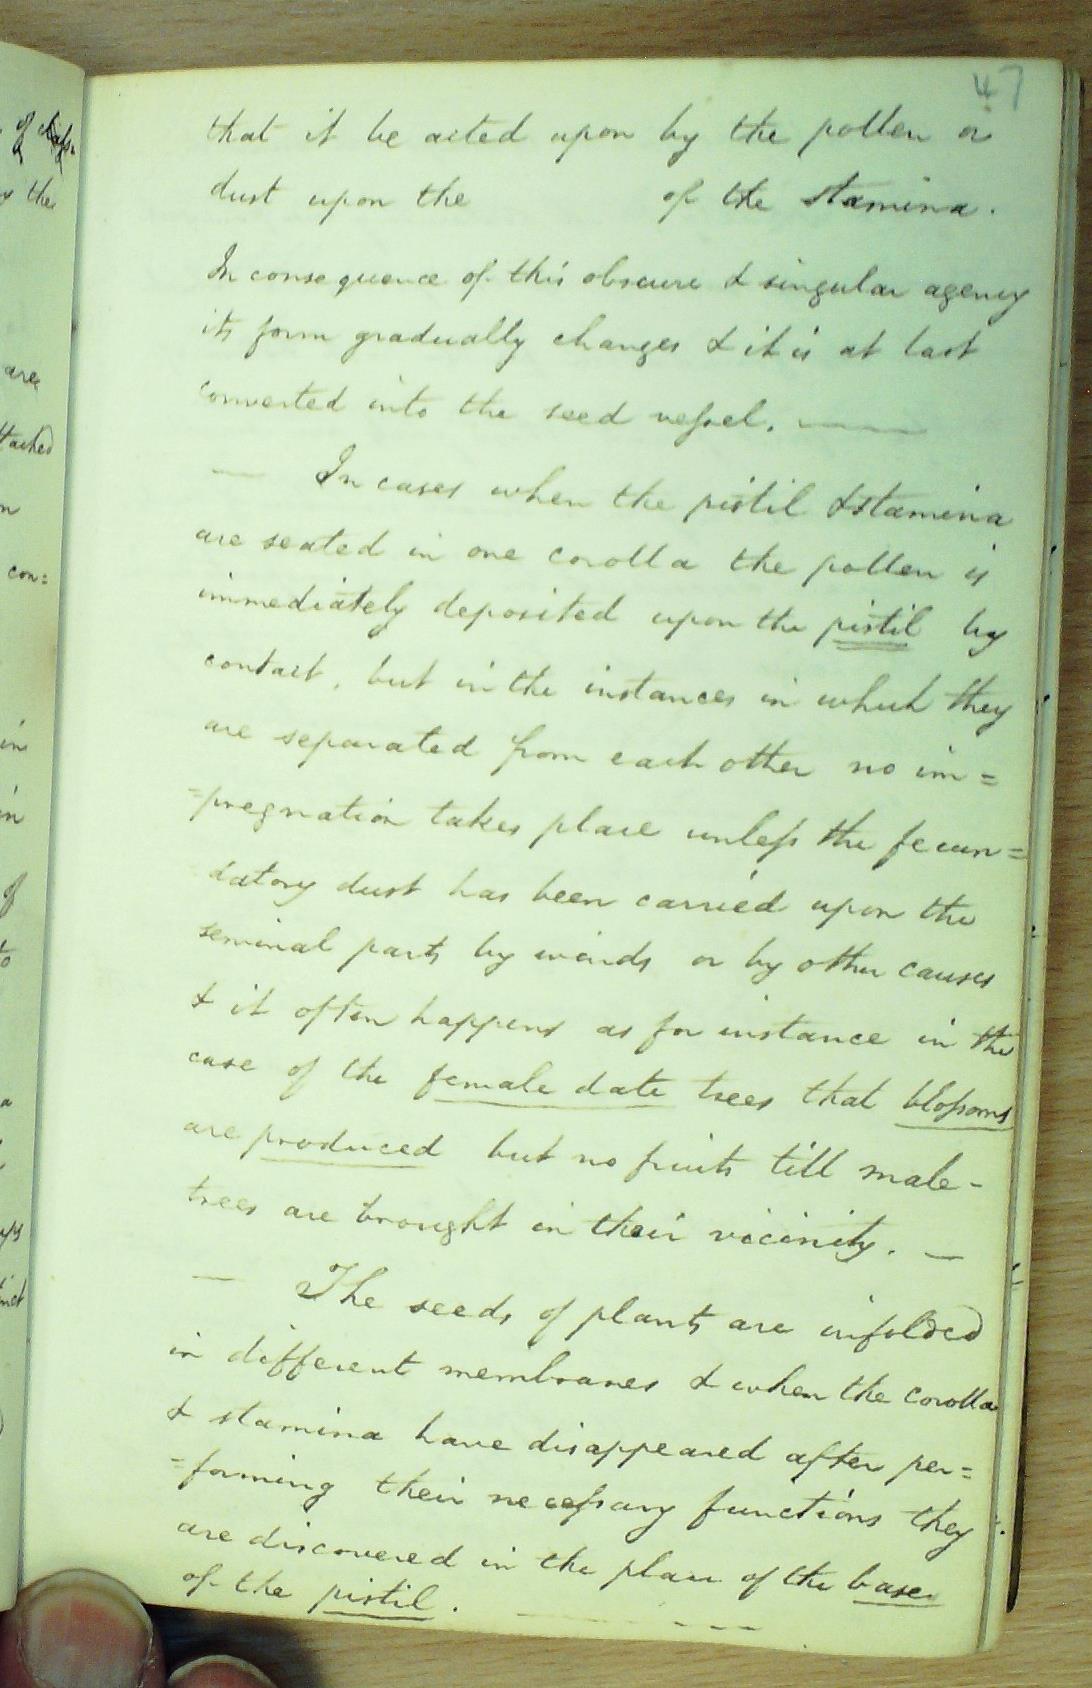 47
that it be acted upon by the pollen or
dust upon the of the stamina.
In consequence of this obscure & singular agency
its form gradually changes & it is at last
converted into the seed vessel.
— In cases when the pistil & stamina
are seated in one corolla the pollen is
immediately deposited upon the pistil by
contact, but in the instances in which they
are separated from each other no im=
=pregnation takes place unless the fecun=
datory dust has been carried upon the
seminal parts by winds or by other causes
& it often happens as for instance in the
case of the female date trees that blossoms
are produced but no fruits till male-
trees are brought in their vicinity. —
— The seeds of plants are infolded
in different membranes & when the corolla
& stamina have disappeared after per=
=forming their necessary functions they
are discovered in the place of the base
of the pistil.
y the
are
ttached
n
con=
in
in
of
to
a